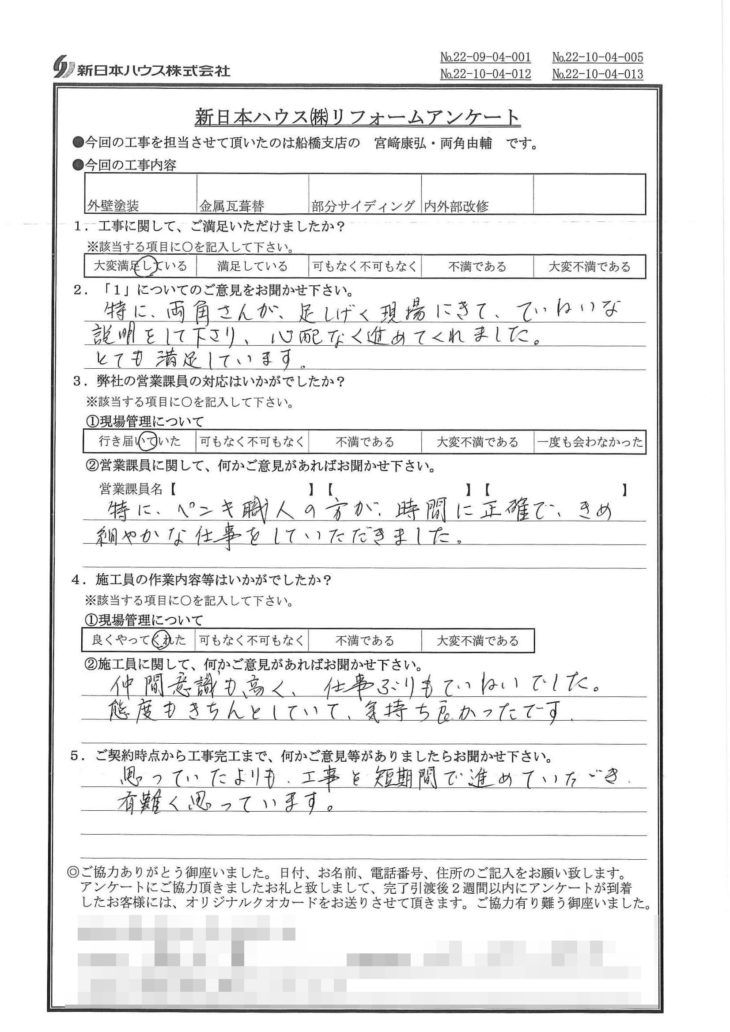 新日本ハウス株式会社
№22-09-04-001 №22-10-04-005
№22-10-04-012 №22-10-04-013
新日本ハウス㈱リフォームアンケート
●今回の工事を担当させて頂いたのは船橋支店の 宮﨑康弘・両角由輔 です。
●今回の工事内容
外壁塗装 金属瓦葺替 部分サイディング 内外部改修
1．工事に関して、ご満足いただけましたか？
※該当する項目に○を記入して下さい。
大変満足している 満足している 可もなく不可もなく 不満である 大変不満である
2．「1」についてのご意見をお聞かせ下さい。
特に、両角さんが、足しげく現場にきて、ていねいな
説明をして下さり、心配なく進めてくれました。
とても満足しています。
3．弊社の営業課員の対応はいかがでしたか？
※該当する項目に○を記入して下さい。
①現場管理について
行き届いていた 可もなく不可もなく 不満である 大変不満である 一度も会わなかった
②営業課員に関して、何かご意見があればお聞かせ下さい。
営業課員名【 】【 】【 】
特に、ペンキ職人の方が、時間に正確で、きめ
細やかな仕事をしていただきました。
4．施工員の作業内容等はいかがでしたか？
※該当する項目に○を記入して下さい。
①現場管理について
良くやってくれた 可もなく不可もなく 不満である 大変不満である
②施工員に関して、何かご意見があればお聞かせ下さい。
仲間意識も高く、仕事ぶりもていねいでした。
態度もきちんとしていて、気持ち良かったです。
5．ご契約時点から工事完工まで、何かご意見等がありましたらお聞かせ下さい。
思っていたよりも、工事を短期間で進めていただき、
有難く思っています。
◎ご協力ありがとう御座いました。日付、お名前、電話番号、住所のご記入をお願い致します。
アンケートにご協力頂きましたお礼と致しまして、完了引渡後2週間以内にアンケートが到着
したお客様には、オリジナルクオカードをお送りさせて頂きます。ご協力有り難う御座いました。